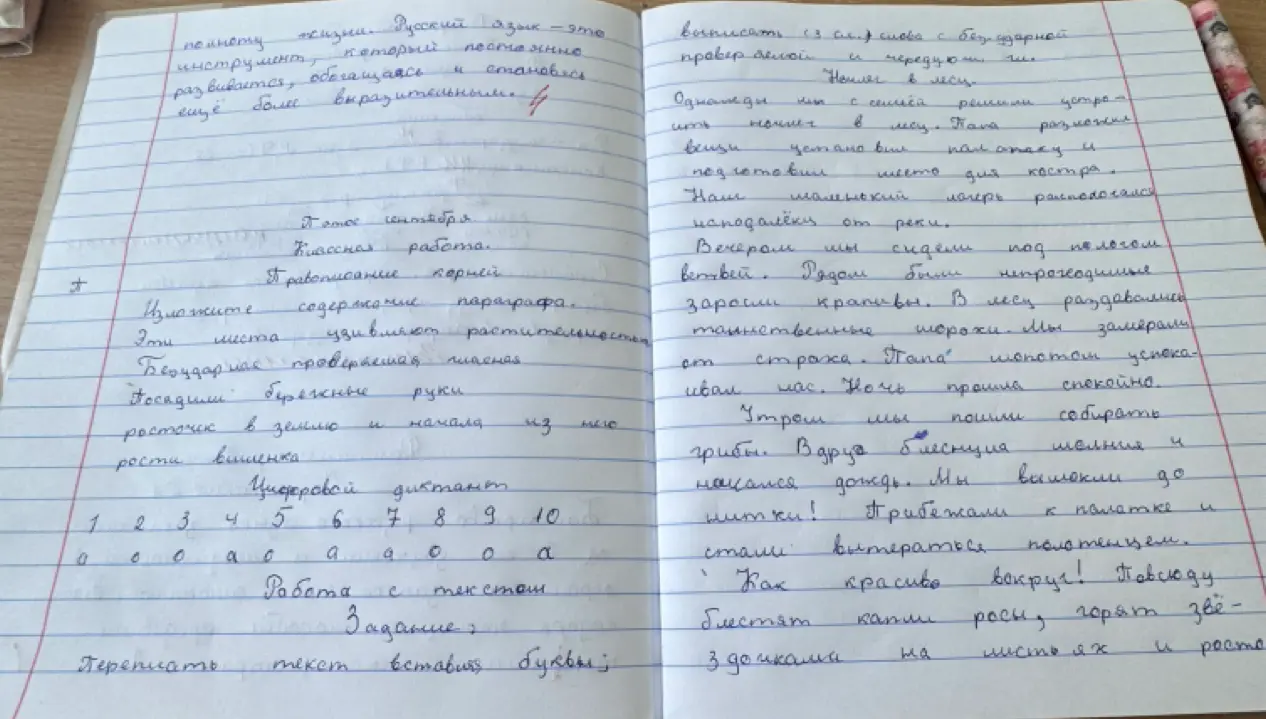 полноту жизни. Русский язык – это
инструмент, который постоянно
развивается, обогащаясь и становясь
ещё более выразительным. 4
Пятое сентября
Классная работа.
Правописание корней
Изложите содержание параграфа.
Эти места удивляют растительностью
Безударная проверяемая гласная
Посадили бережные руки
росточек в землю и начала из него
рости вишенка
Цифровой диктант
1 2 3 4 5 6 7 8 9 10
о о о а о а а о о а
Работа с текстом
Задание:
Переписать текст вставив буквы;
выписать (3 сл.) слова с безударной
проверяемой и чередующ. и.
Ночлег в лесу.
Однажды мы с семьёй решили устро-
ить ночлег в лесу. Папа разложил
вещи установил палатку и
подготовил место для костра.
Наш маленький лагерь расположался
наподалёку от реки.
Вечером мы сидели под пологом
ветвей. Рядом были непроходимые
заросли крапивы. В лесу раздавались
таинственные шорохи. Мы замерали
от страха. Папа шопотом успока-
ивал нас. Ночь прошла спокойно.
Утром мы пошли собирать
грибы. Вдруг блеснула молния и
начался дождь. Мы вымокли до
нитки! Прибежали к палатке и
стали вытераться полотенцем.
Как красиво вокруг! Повсюду
блестят капли росы, горят звё-
здочками на листьях и роста